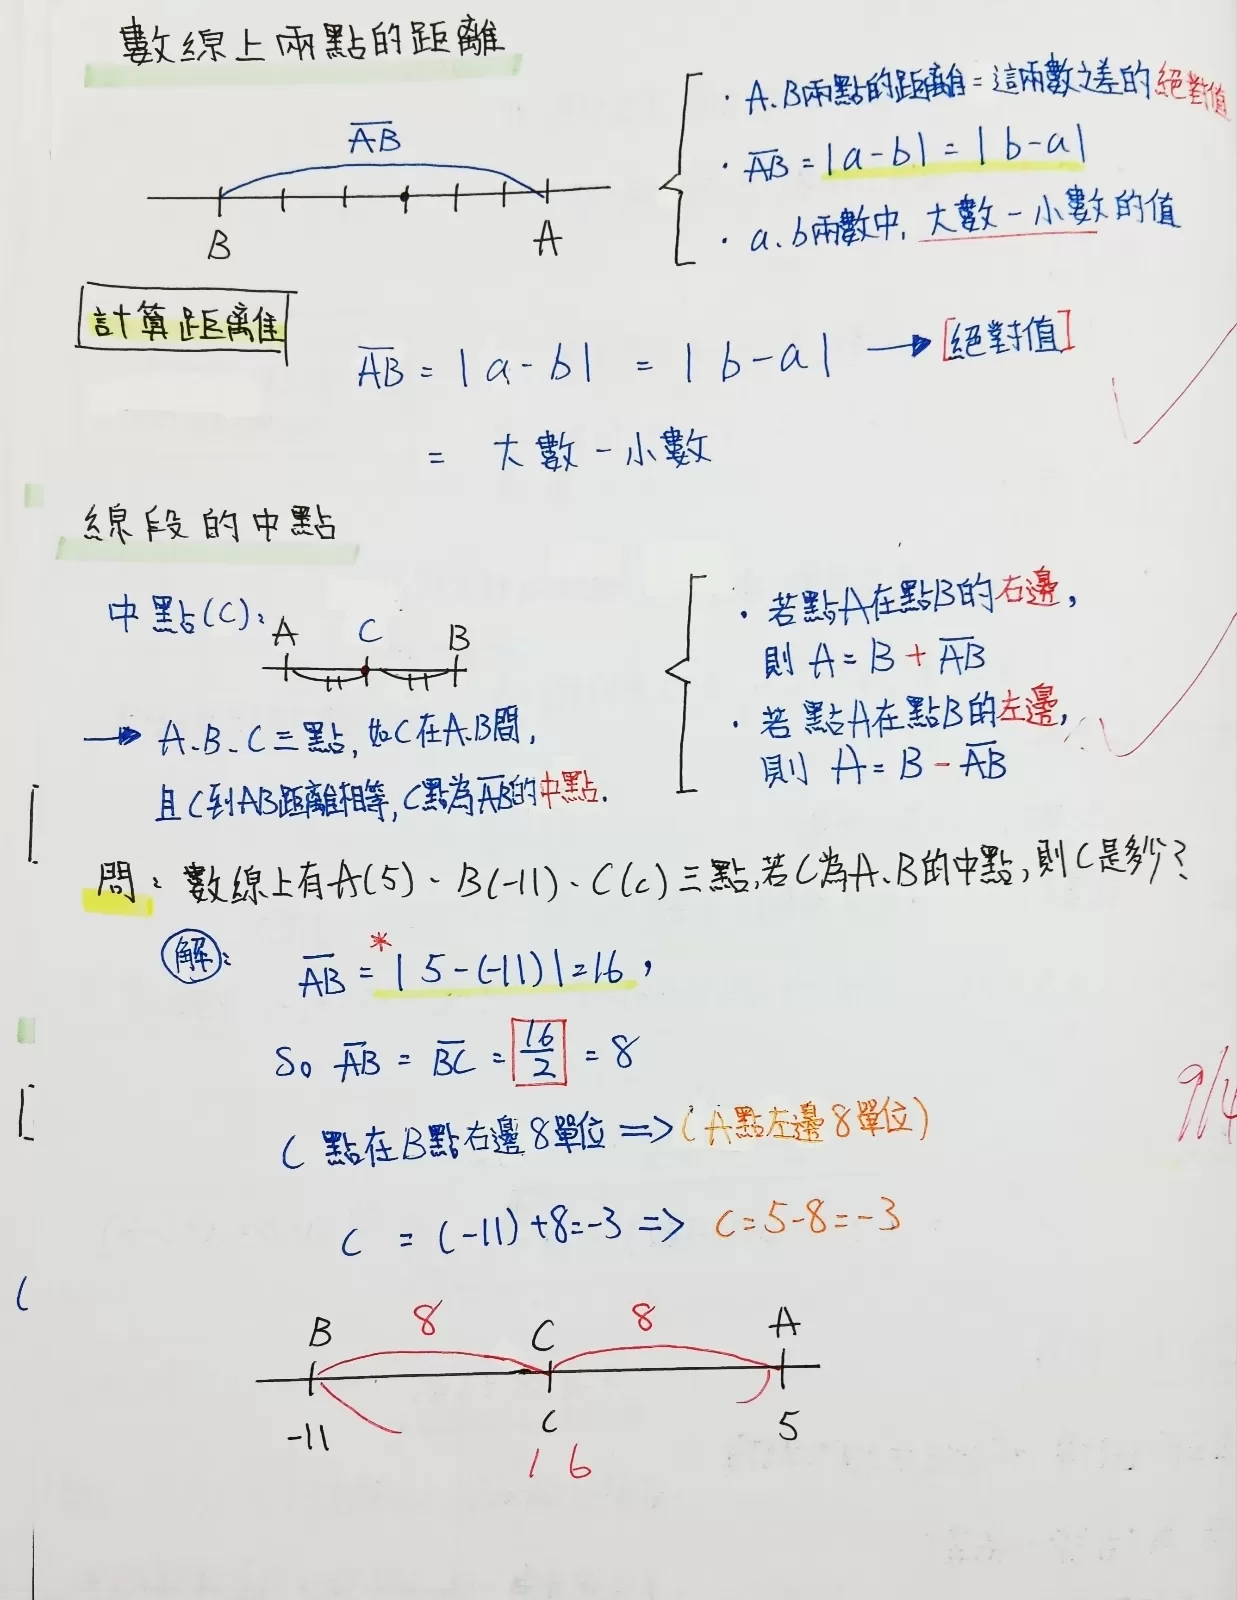 數線上兩點的距離
AB
B
A
· A、B兩點的距離=這兩數之差的絕對值
· AB = |a-b| = |b-a|
· a、b兩數中, 大數-小數的值
計算距離
AB = |a-b| = |b-a| → [絕對值]
= 大數-小數
線段的中點
中點(C):
A C B
→ A、B、C三點, 如C在A、B間,
且C到AB距離相等, C點為AB的中點.
· 若點A在點B的右邊,
則 A = B + AB
· 若點A在點B的左邊,
則 A = B - AB
問: 數線上有A(5)、B(-11)、C(c)三點, 若C為A、B的中點, 則C是多少?
解: AB = *|5-(-11)|=16,
So AB = BC = 16/2 = 8
C點在B點右邊8單位 => (A點左邊8單位)
C = (-11)+8=-3 => C=5-8=-3
9/4
B 8 C 8 A
-11 C 5
16